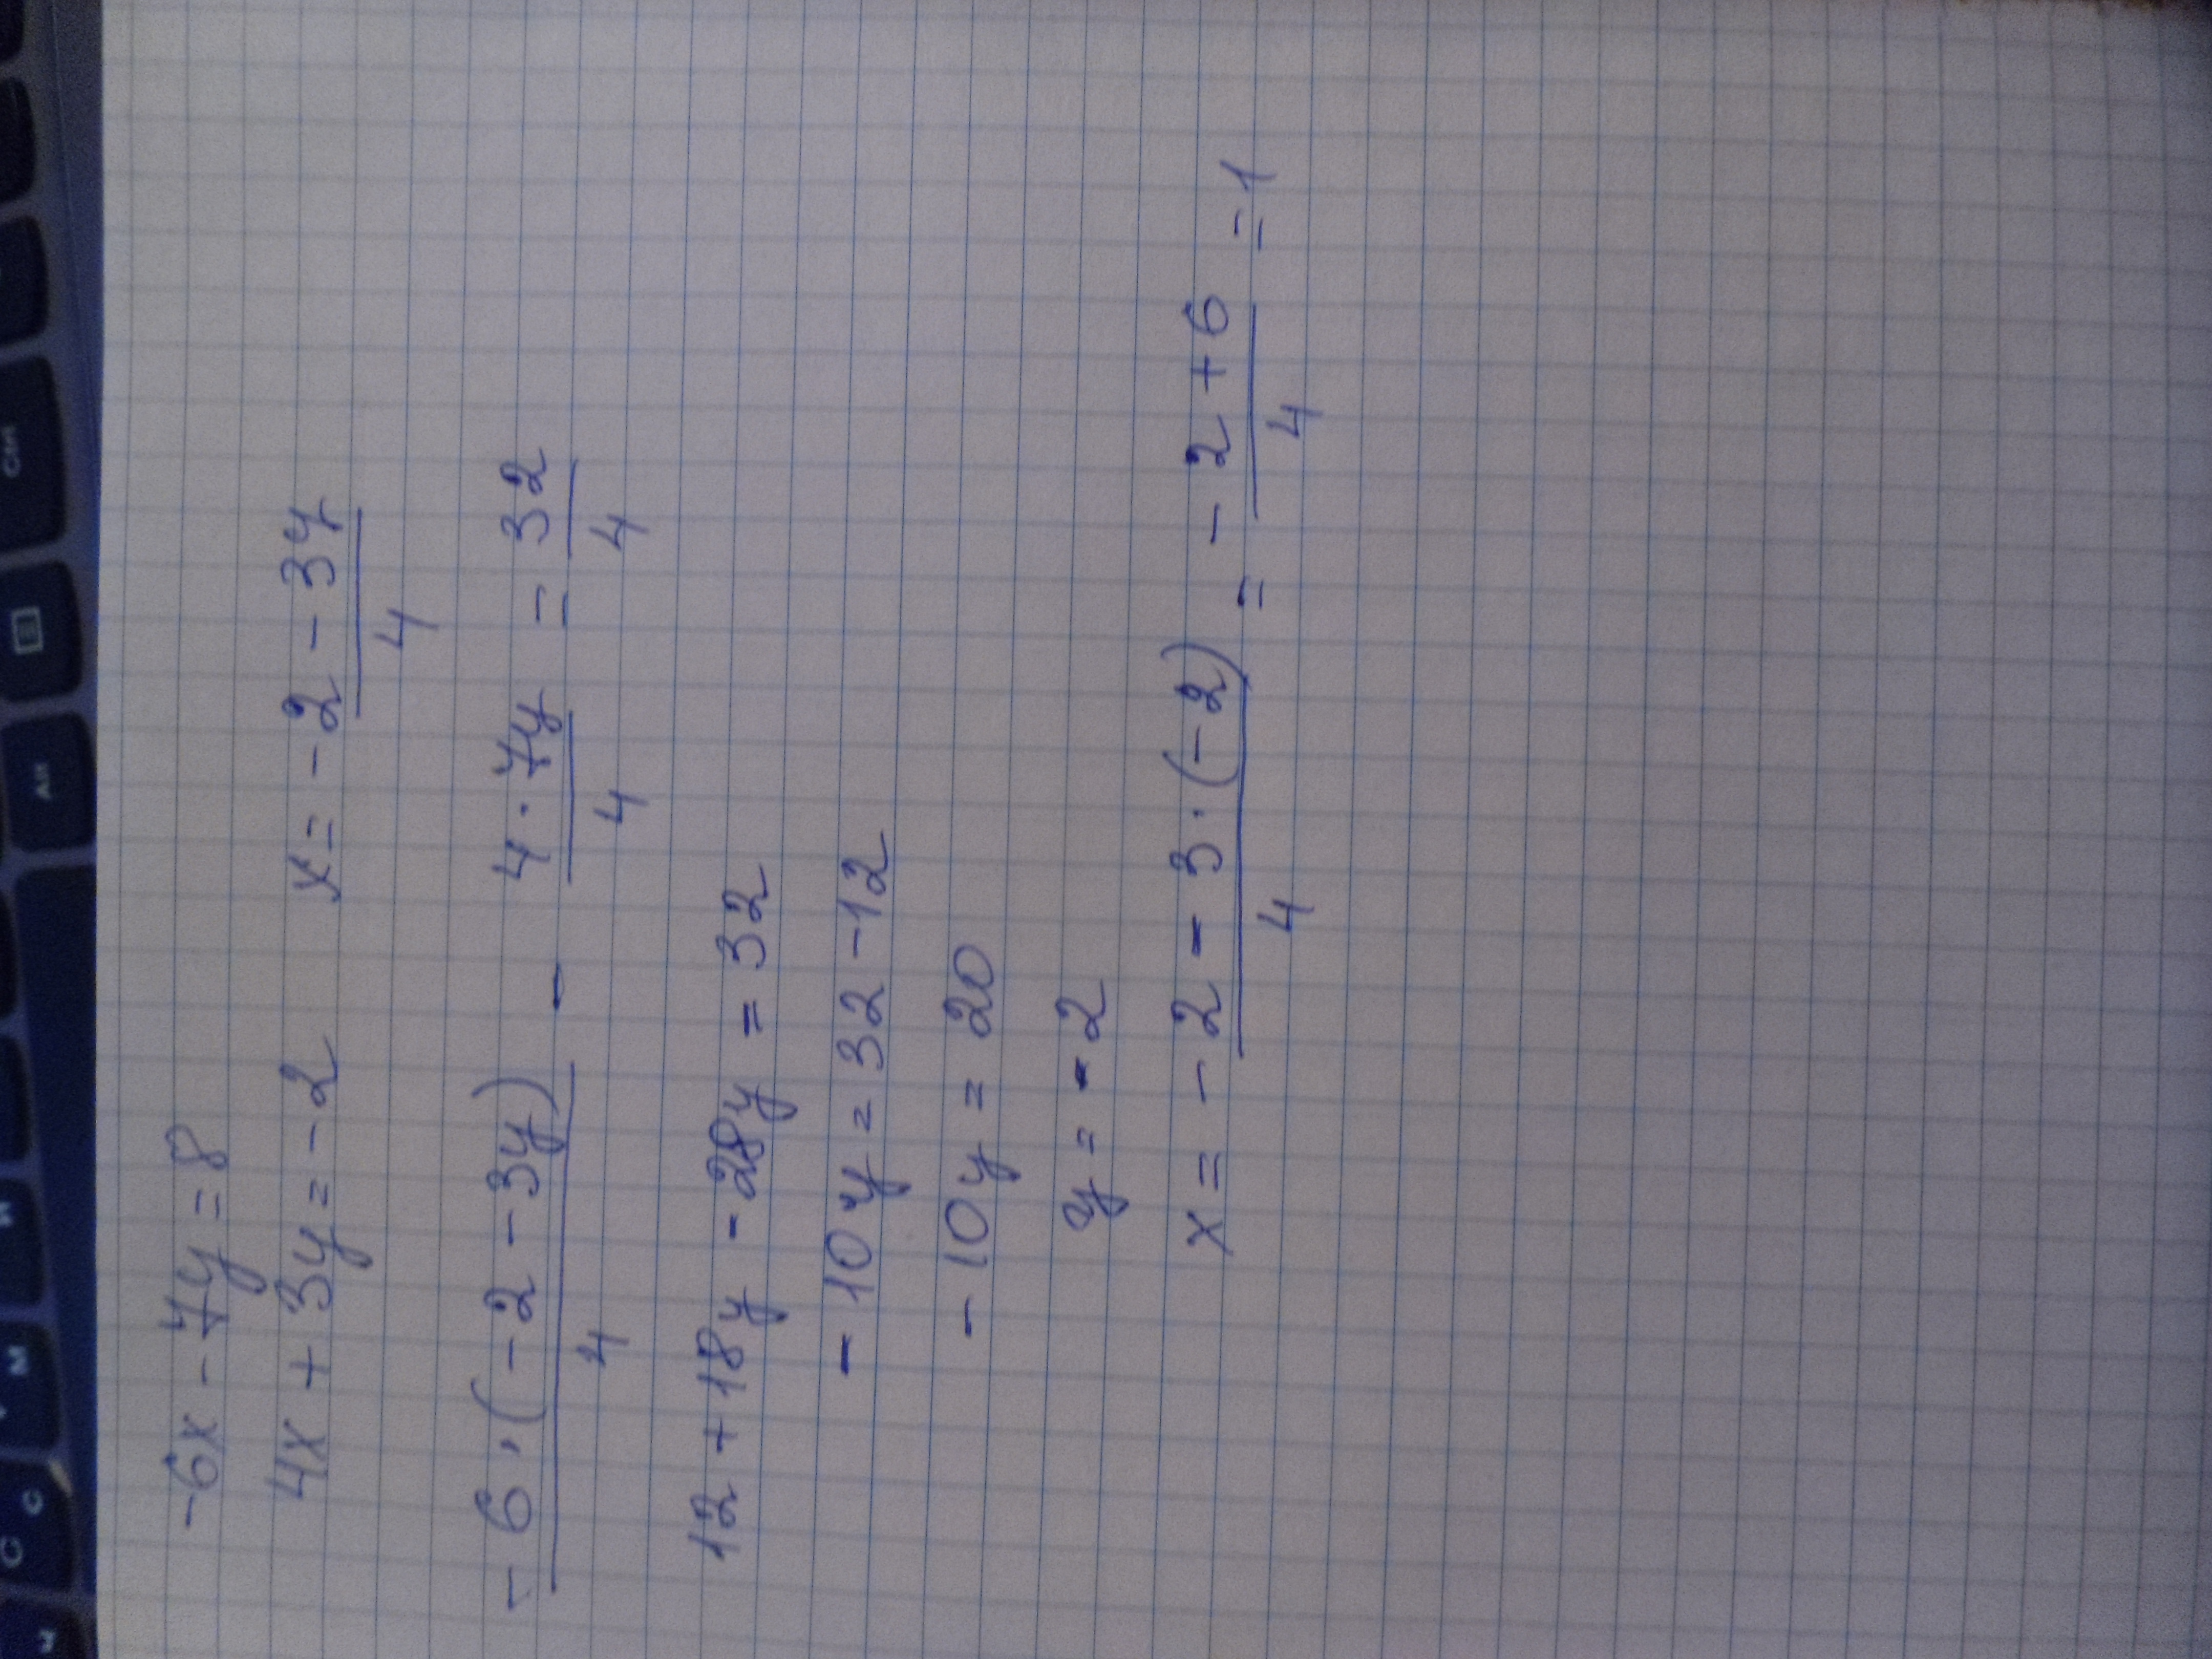 -6x - 7y = 8
4x + 3y = -2 x = -2 - 3y / 4
-6 · (-2 - 3y) / 4 - 4 · 7y / 4 = 32 / 4
12 + 18y - 28y = 32
-10y = 32 - 12
-10y = 20
y = -2
x = -2 - 3 · (-2) / 4 = -2 + 6 / 4 = 1
Ctrl
Alt
M
C С